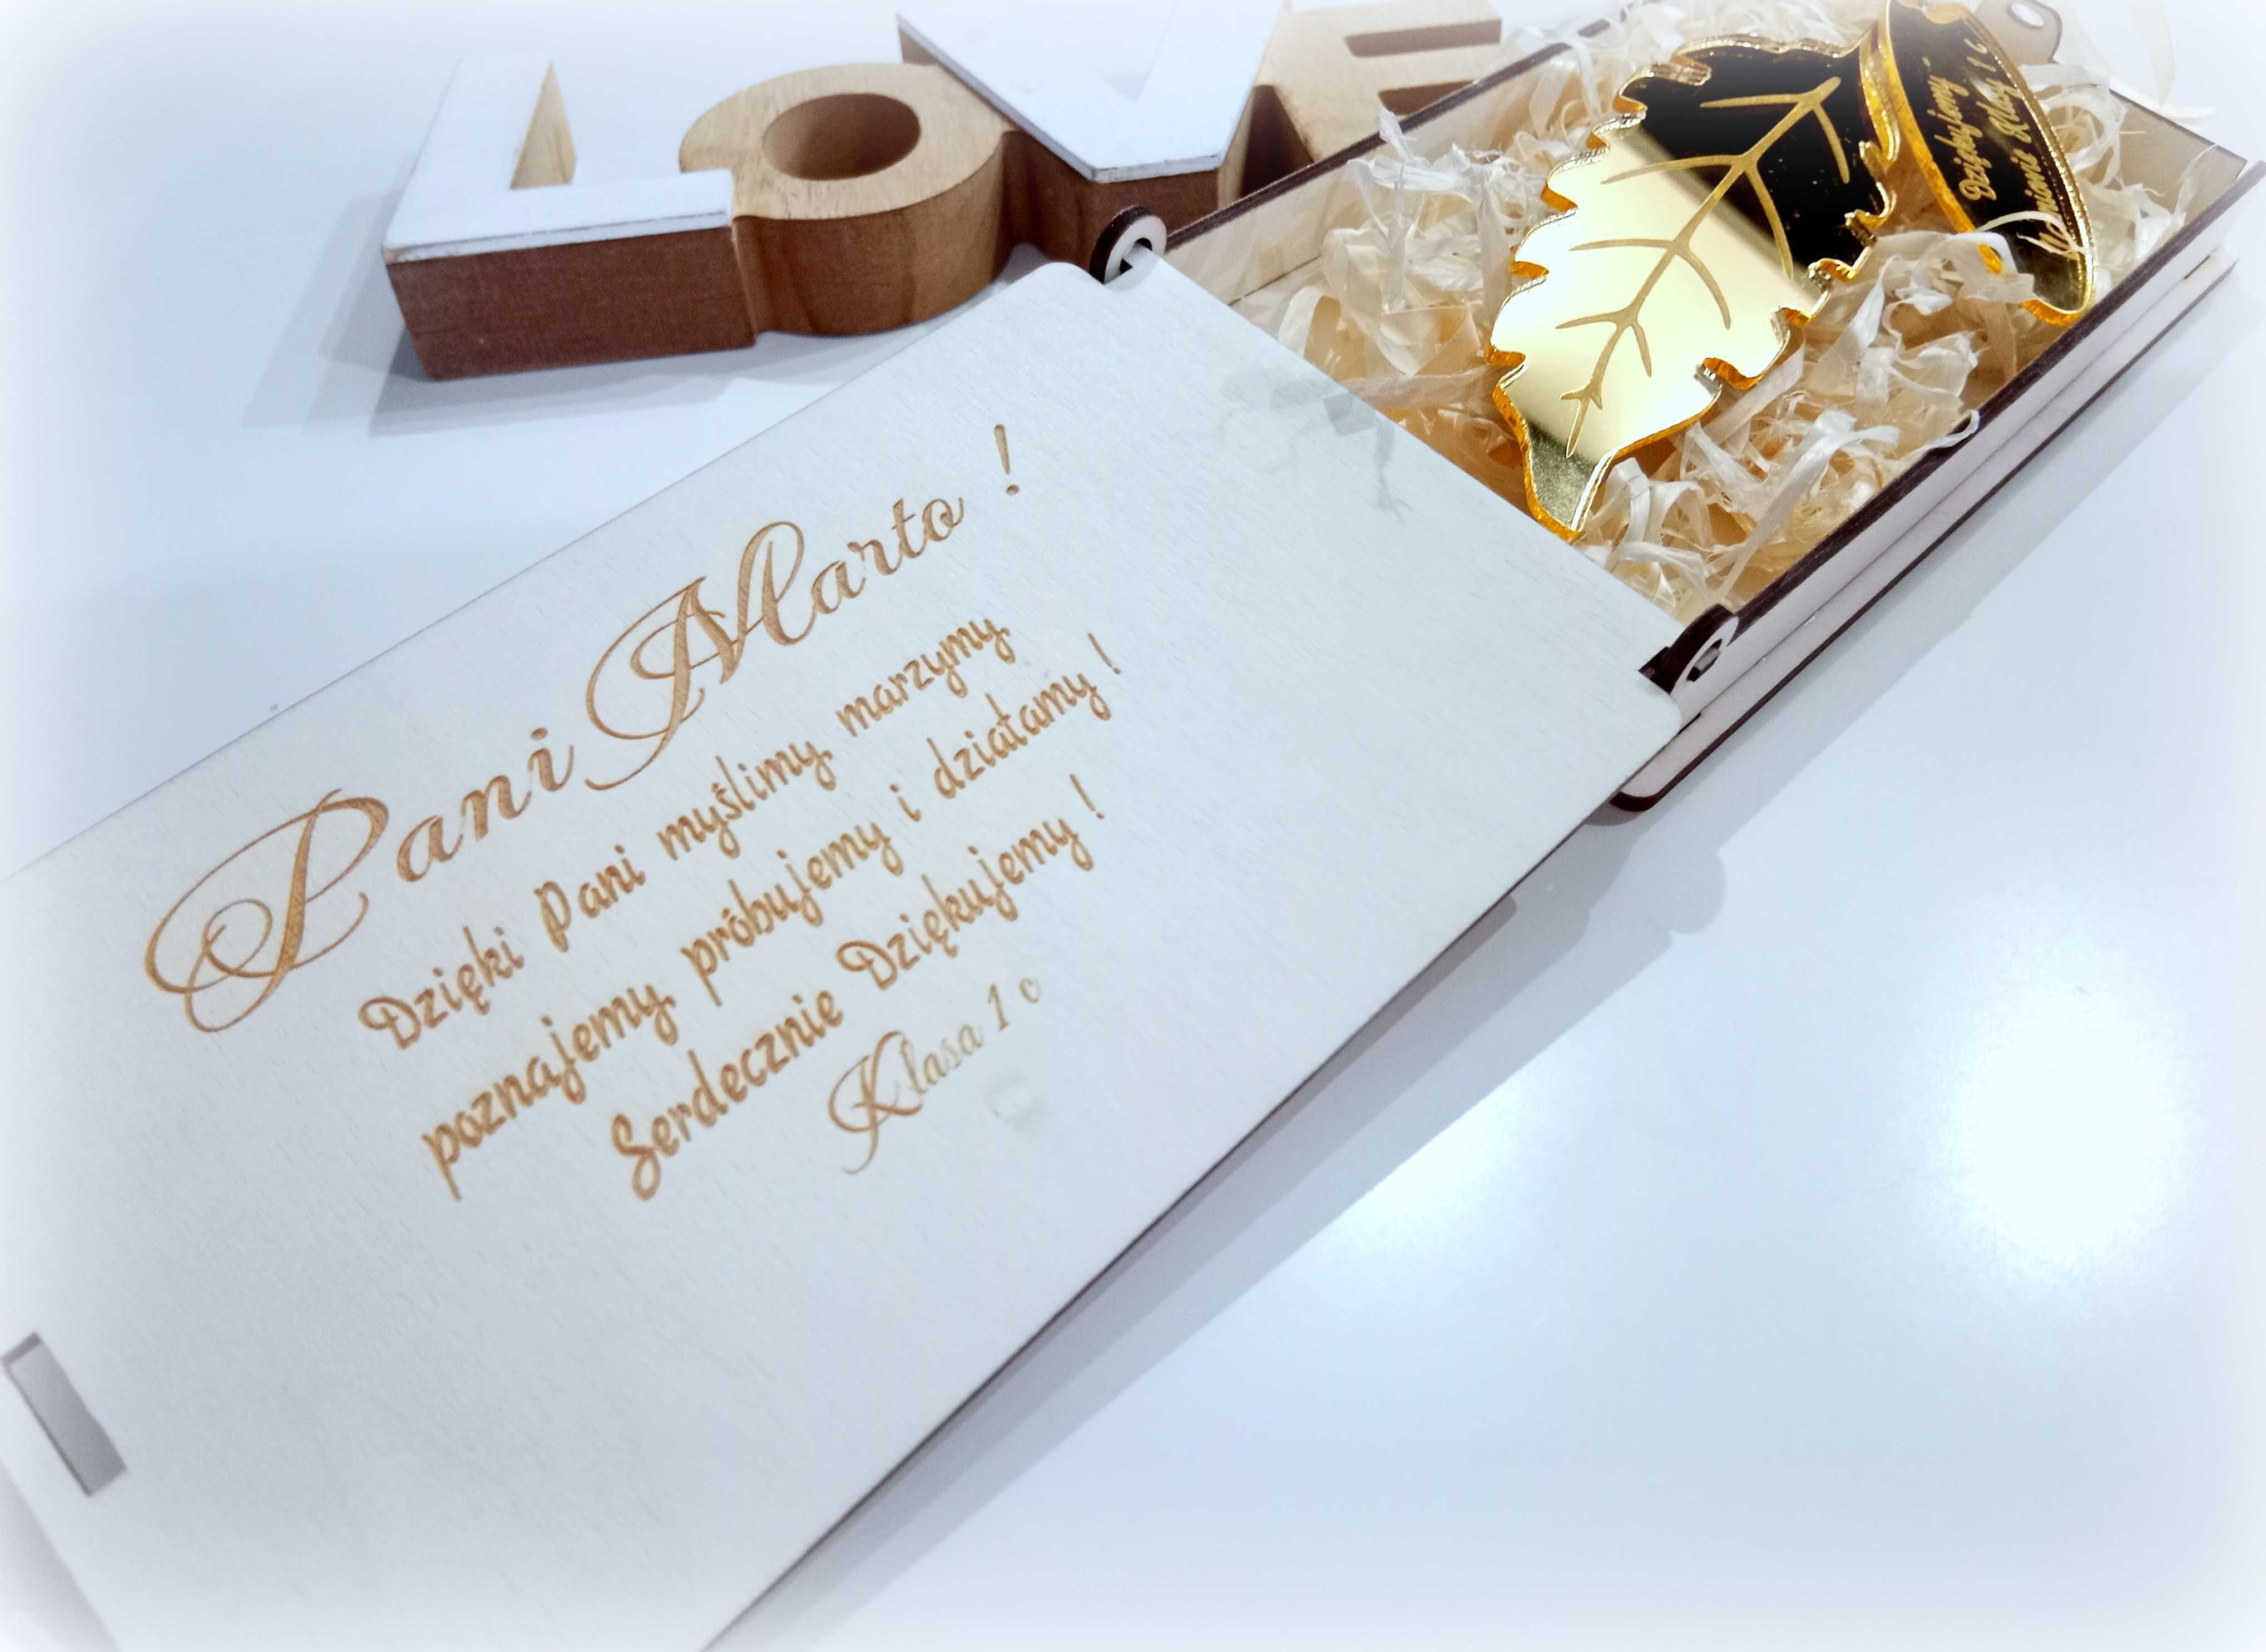 LOVE
Dziękujemy
Uczniowie Klasy 1 c
Pani Marto !
Dzięki Pani myślimy, marzymy,
poznajemy, próbujemy i działamy !
Serdecznie Dziękujemy !
Klasa 1 c